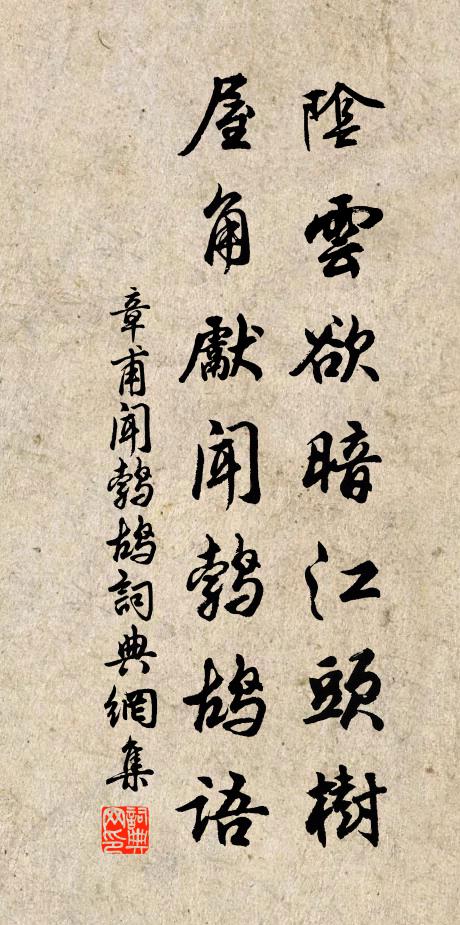 陰雲欲暗江頭樹
屋角獻聞鵓鴣語
章甫聞鵓鴣詞典網集
詞典
网印